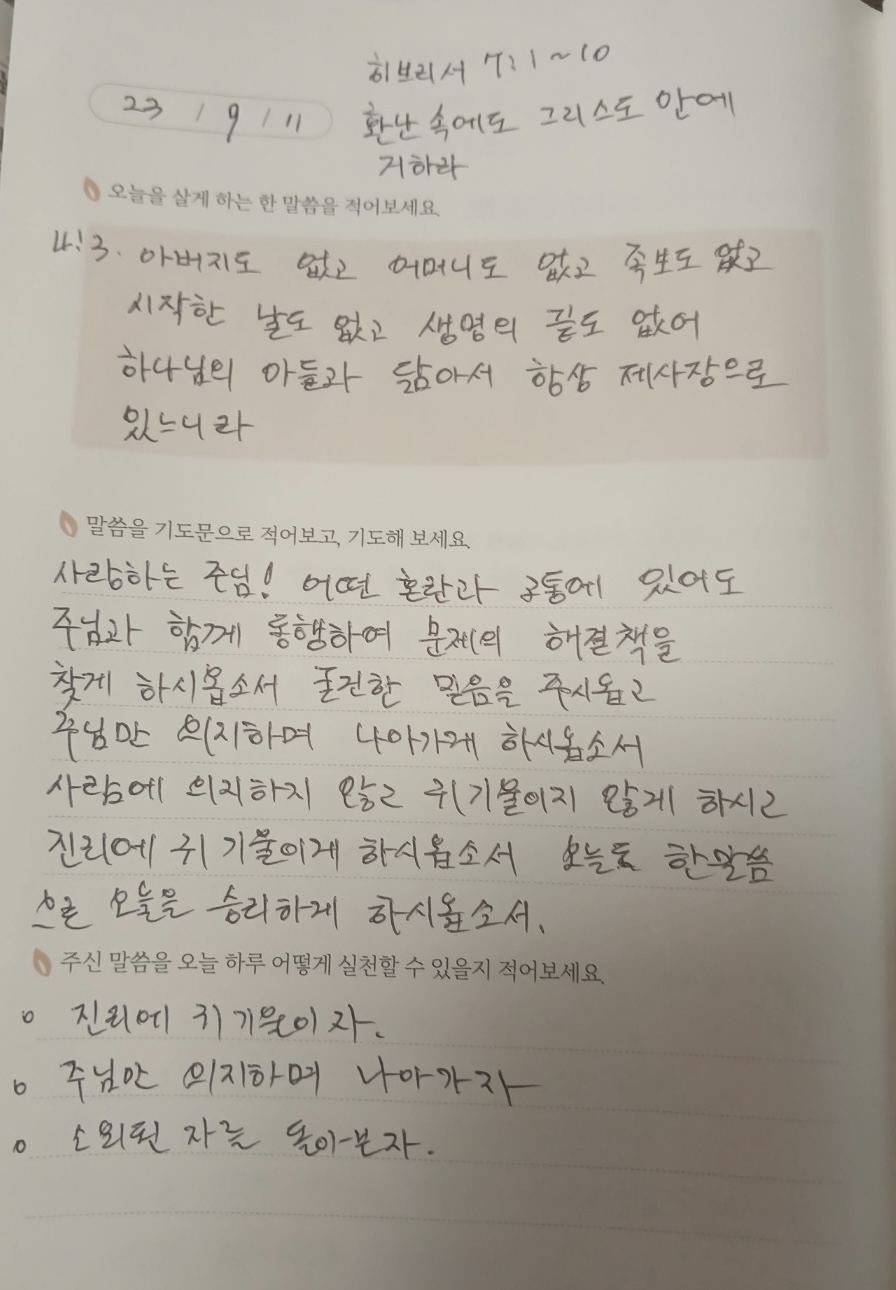 히브리서 7:1~10
23 / 9 / 11
환난 속에도 그리스도 안에
거하라
오늘을 살게 하는 한 말씀을 적어보세요.
4:3. 아버지도 없고 어머니도 없고 족보도 없고
시작한 날도 없고 생명의 끝도 없어
하나님의 아들과 닮아서 항상 제사장으로
있느니라
말씀을 기도문으로 적어보고, 기도해 보세요.
사랑하는 주님! 어떤 혼란과 고통에 있어도
주님과 함께 동행하여 문제의 해결책을
찾게 하시옵소서 굳건한 믿음을 주시옵고
주님만 의지하며 나아가게 하시옵소서
사람에 의지하지 않고 귀 기울이지 않게 하시고
진리에 귀 기울이게 하시옵소서 오늘도 한말씀
으로 오늘을 승리하게 하시옵소서.
주신 말씀을 오늘 하루 어떻게 실천할 수 있을지 적어보세요.
o 진리에 귀 기울이자.
o 주님만 의지하며 나아가자
o 소외된 자를 돌아본자.